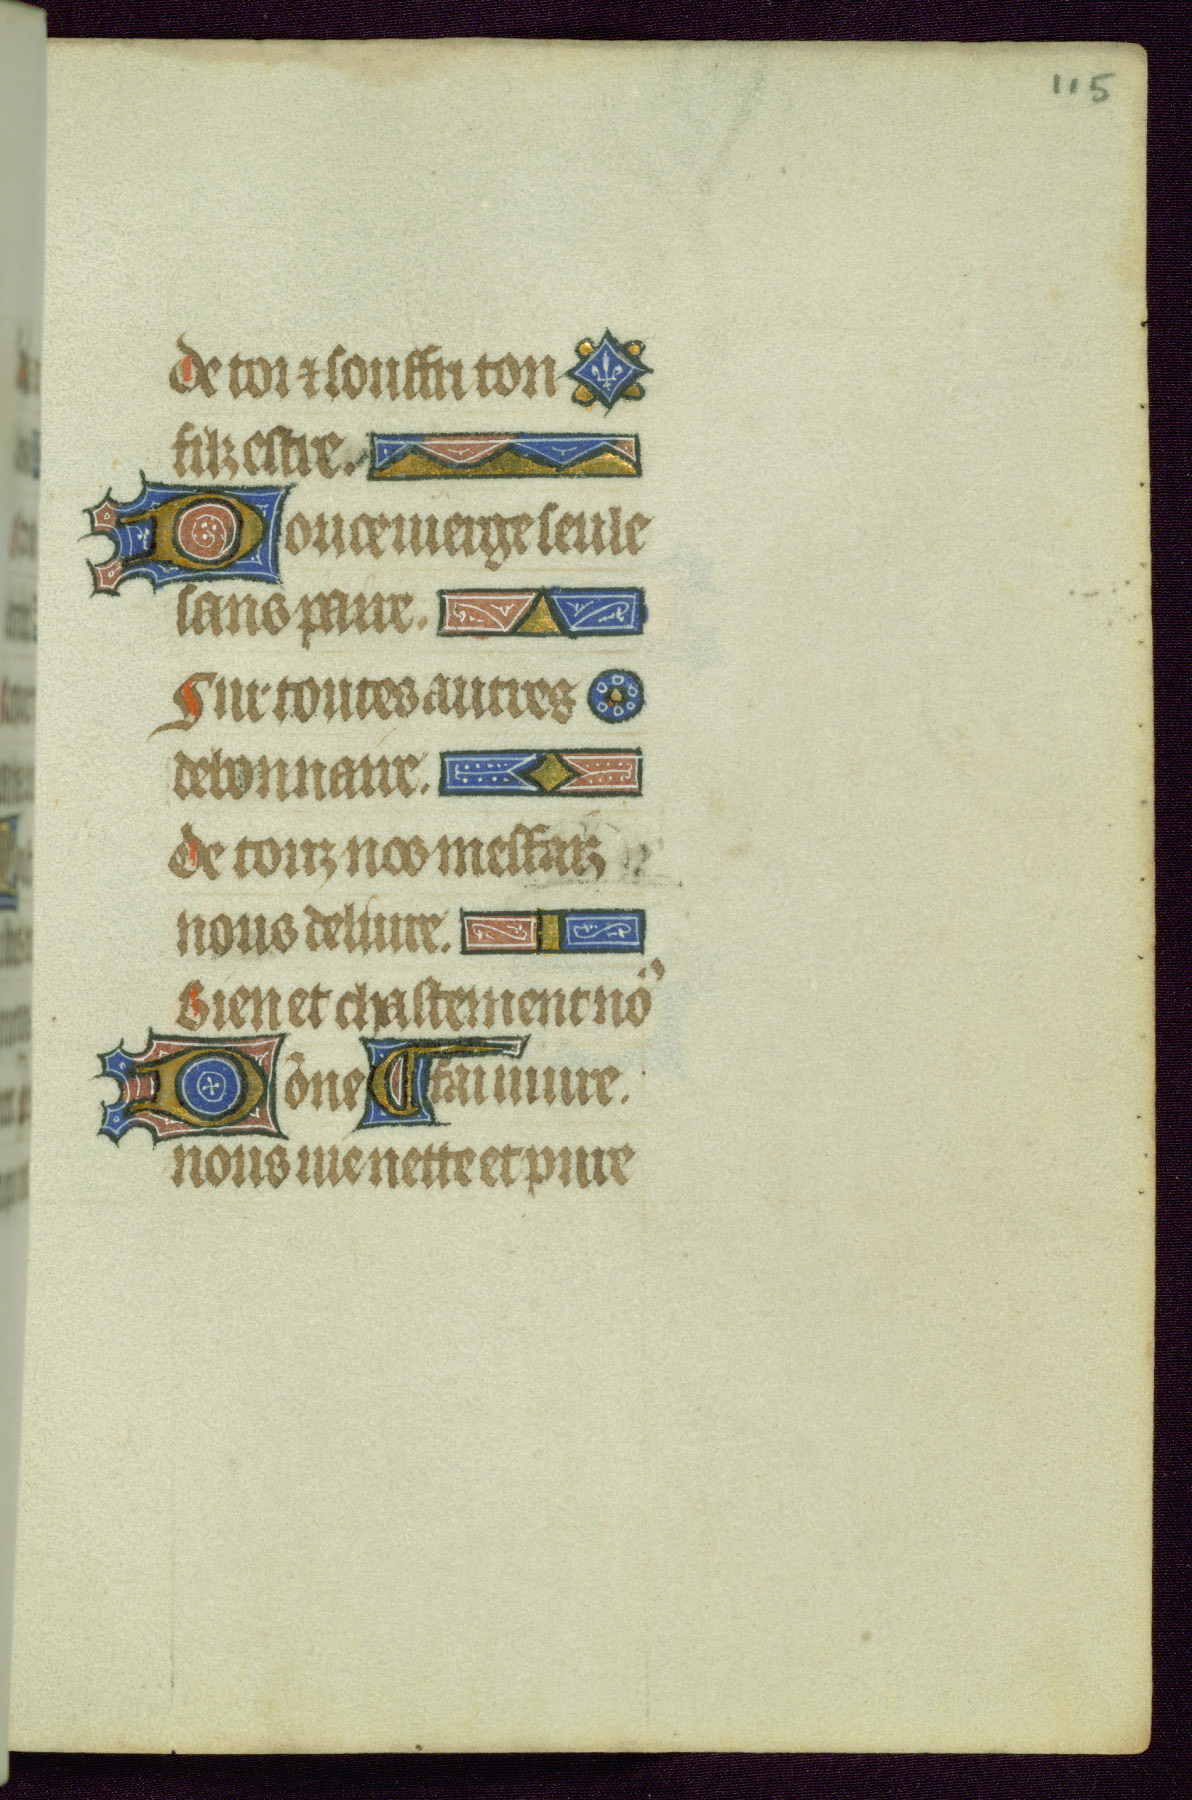 115
de toi ⁊ souffri ton
filz estre.
Douce uierge seule
sanz paire.
Sur toutes autres
debonnaire.
de touz nos meffaiz
nous deliure.
Bien et chastement nō⁹
Dōne Et fai uiure.
nous uie nette et pure